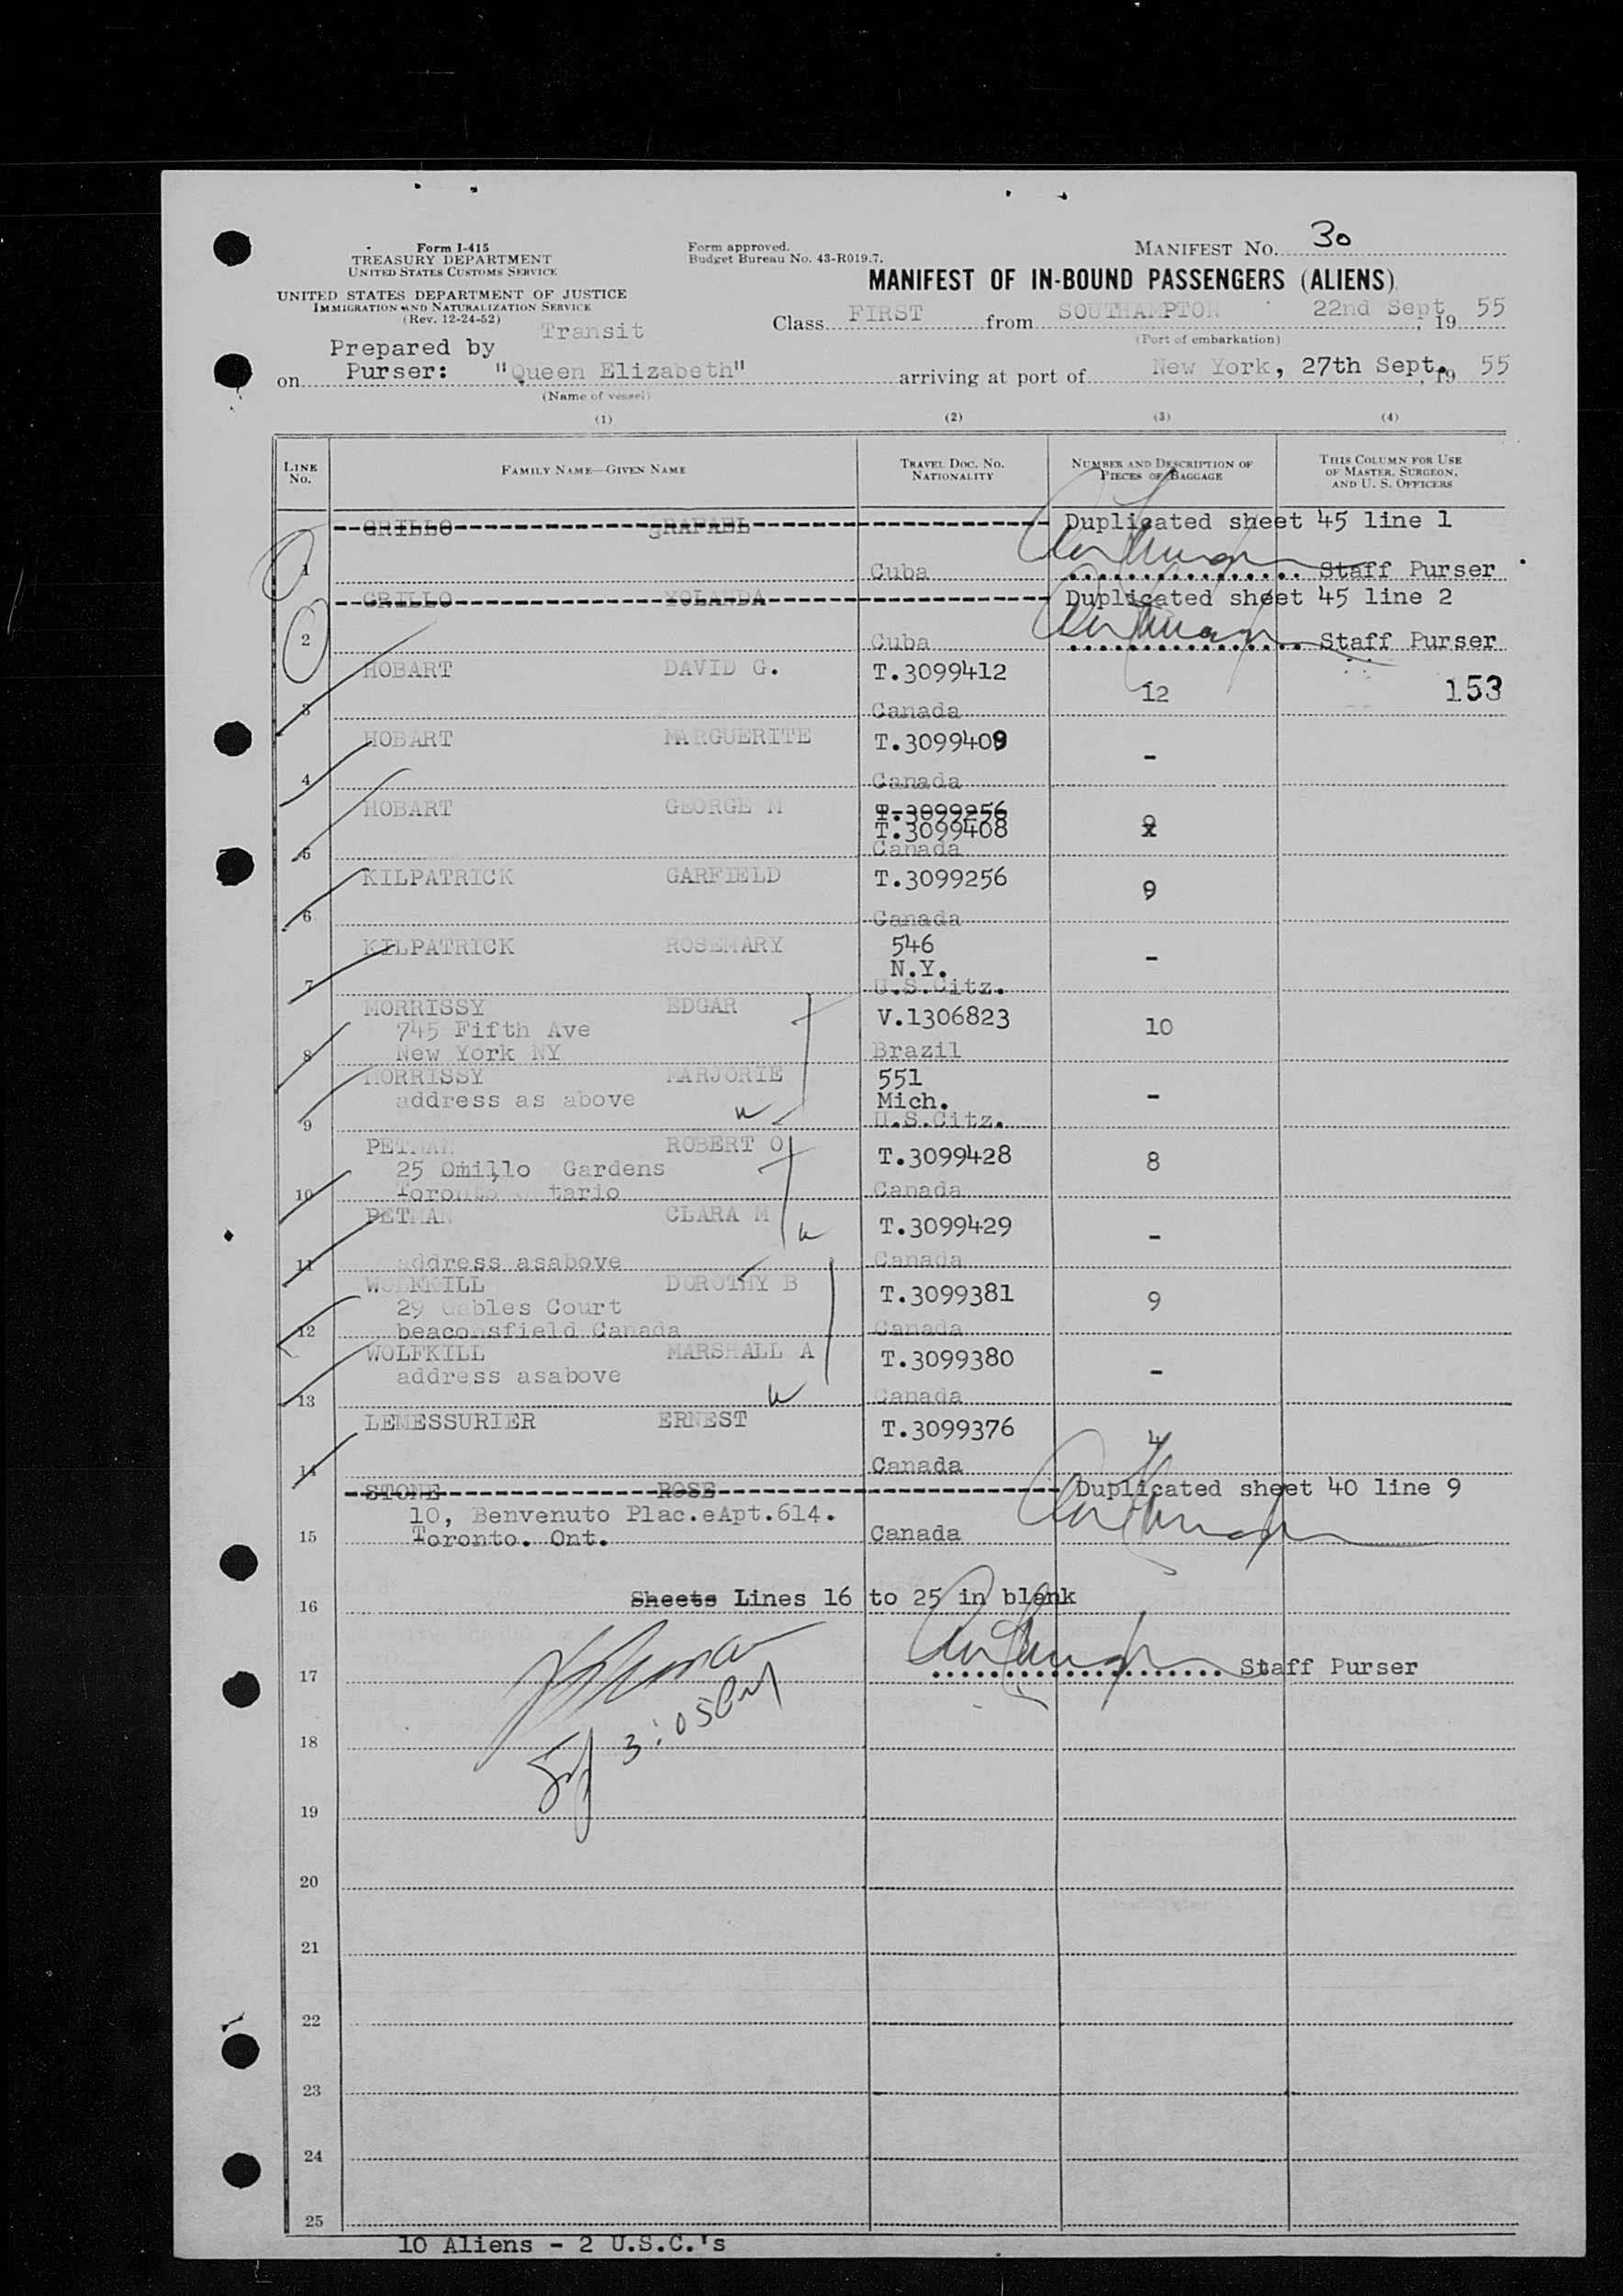 Form I-415
TREASURY DEPARTMENT
UNITED STATES CUSTOMS SERVICE
UNITED STATES DEPARTMENT OF JUSTICE
IMMIGRATION AND NATURALIZATION SERVICE
(Rev. 12-24-52)
Form approved.
Budget Bureau No. 43-R019.7.
MANIFEST NO. 30
MANIFEST OF IN-BOUND PASSENGERS (ALIENS)
Transit
Class FIRST from SOUTHAMPTON 22nd Sept, 19 55
(Port of embarkation)
Prepared by
on Purser: "Queen Elizabeth" arriving at port of New York, 27th Sept. 19 55
(Name of vessel)
(1) (2) (3) (4)
LINE NO. FAMILY NAME—GIVEN NAME TRAVEL DOC. NO. NATIONALITY NUMBER AND DESCRIPTION OF PIECES OF BAGGAGE THIS COLUMN FOR USE OF MASTER, SURGEON, AND U. S. OFFICERS
GRILLO RAFAEL Duplicated sheet 45 line 1
1 Cuba Staff Purser
GRILLO YOLANDA Duplicated sheet 45 line 2
2 Cuba Staff Purser
HOBART DAVID G. T.3099412 12 153
3 Canada
HOBART MARGUERITE T.3099409 -
4 Canada
HOBART GEORGE M T.3099256
T.3099408
5 Canada
KILPATRICK GARFIELD T.3099256 9
6 Canada
KILPATRICK ROSEMARY 546 -
N.Y.
7 U.S.Citz.
MORRISSY EDGAR V.1306823 10
745 Fifth Ave
8 New York NY Brazil
MORRISSY MARJORIE 551 -
address as above Mich.
9 U.S.Citz.
PETMAN ROBERT O T.3099428 8
25 Gardens
10 Toronto Ontario Canada
PETMAN CLARA M T.3099429 -
11 address asabove Canada
WOLFKILL DOROTHY B T.3099381 9
29 Gables Court
12 beaconsfield Canada Canada
WOLFKILL MARSHALL A T.3099380 -
address asabove
13 Canada
LEMESSURIER ERNEST T.3099376 4
14 Canada
STONE ROSE Duplicated sheet 40 line 9
10, Benvenuto Plac.eApt.614.
15 Toronto. Ont. Canada
16 Sheets Lines 16 to 25 in blank
17 Staff Purser
3:05 PM
18
19
20
21
22
23
24
25
10 Aliens - 2 U.S.C.'s